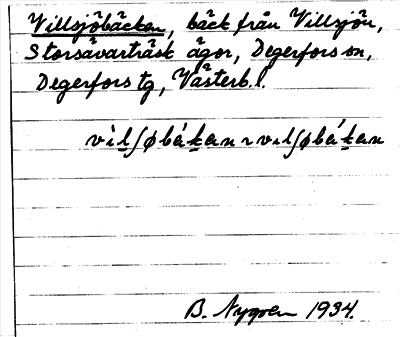 Villsjöbäcken, bäck från Villsjön,
Storsävarträsk ägor, Degerfors sn,
Degerfors tg, Västerb. l.
vìlʃøbákan ~ vɩlʃøbákan
B. Nygren 1934.